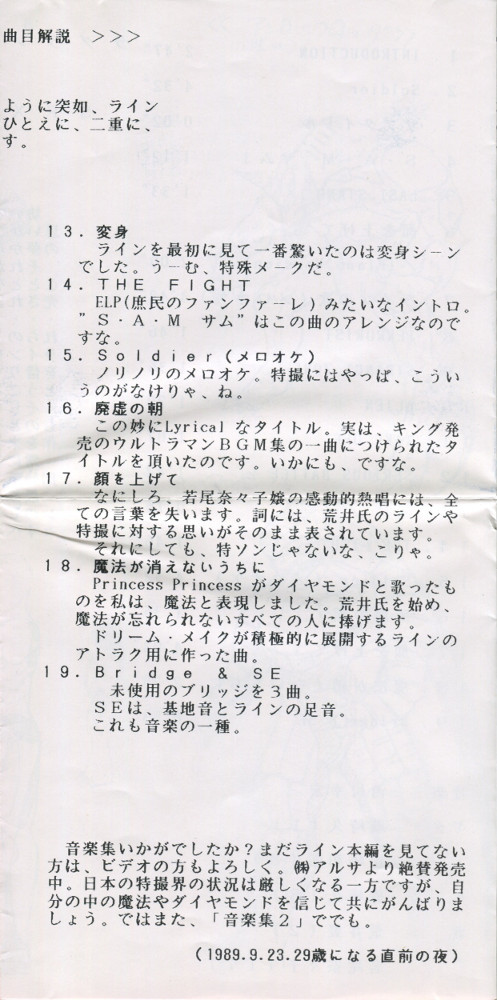 曲目解説 >>>
ように突如、ライン
ひとえに、二重に、
す。
13. 変身
ラインを最初に見て一番驚いたのは変身シーン
でした。うーむ、特殊メークだ。
14. THE FIGHT
ELP(庶民のファンファーレ)みたいなイントロ。
"S・A・M サム"はこの曲のアレンジなので
すな。
15. Soldier(メロオケ)
ノリノリのメロオケ。特撮にはやっぱ、こうい
うのがなけりゃ、ね。
16. 廃虚の朝
この妙にLyrical なタイトル。実は、キング発
売のウルトラマンBGM集の一曲につけられたタ
イトルを頂いたのです。いかにも、ですな。
17. 顔を上げて
なにしろ、若尾奈々子嬢の感動的熱唱には、全
ての言葉を失います。詞には、荒井氏のラインや
特撮に対する思いがそのまま表されています。
それにしても、特ソンじゃないな、こりゃ。
18. 魔法が消えないうちに
Princess Princess がダイヤモンドと歌ったも
のを私は、魔法と表現しました。荒井氏を始め、
魔法が忘れられないすべての人に捧げます。
ドリーム・メイクが積極的に展開するラインの
アトラク用に作った曲。
19. Bridge & SE
未使用のブリッジを3曲。
SEは、基地音とラインの足音。
これも音楽の一種。
音楽集いかがでしたか?まだライン本編を見てない
方は、ビデオの方もよろしく。㈱アルサより絶賛発売
中。日本の特撮界の状況は厳しくなる一方ですが、自
分の中の魔法やダイヤモンドを信じて共にがんばりま
しょう。ではまた、「音楽集2」ででも。
(1989.9.23.29歳になる直前の夜)